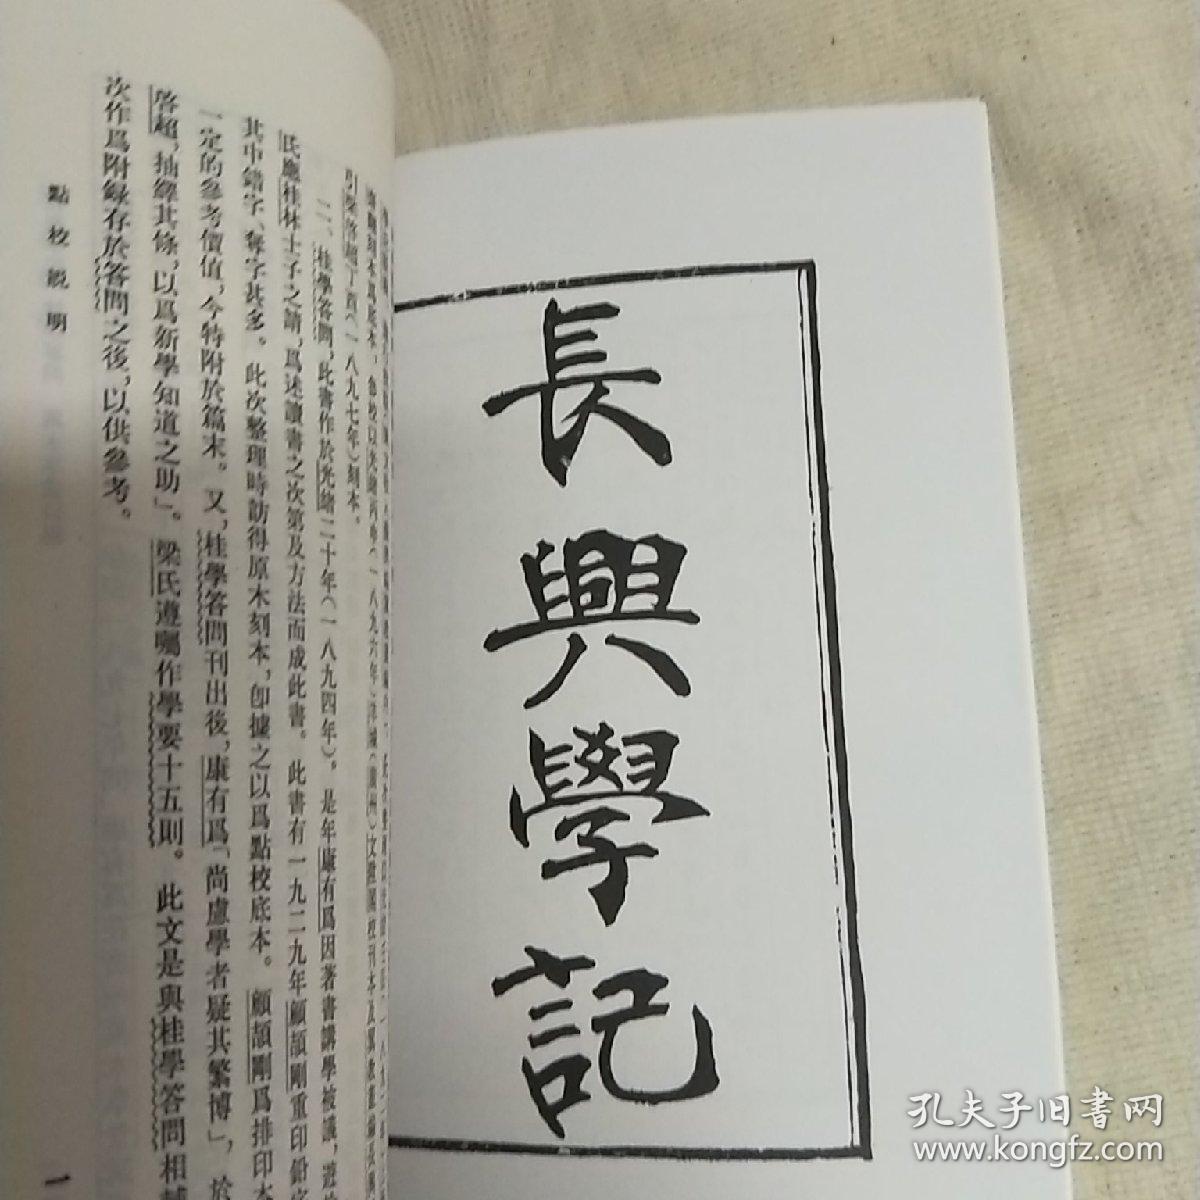 長興學記
引梁啓超丁酉(一八九七年)刻本。
二、桂學答問,此書作於光緒二十年(一八九四年)。是年康有爲因著書講學被議,遊
氏應桂林士子之請,爲述讀書之次第及方法而成此書。此書有一九二九年顧頡剛重印鉛
其中錯字、奪字甚多。此次整理時訪得原木刻本,卽據之以爲點校底本。顧頡剛爲排印本
一定的參考價值,今特附於篇末。又,桂學答問刊出後,康有爲「尚慮學者疑其繁博」,於
啓超,抽繹其條,以爲新學知道之助」。梁氏遵囑作學要十五則。此文是與桂學答問相輔
次作爲附錄存於答問之後,以供參考。
點校説明
一
孔夫子旧书网
www.kongfz.com